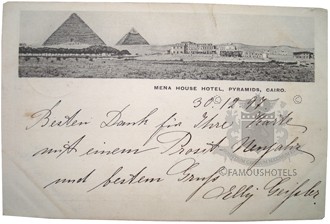 MENA HOUSE HOTEL, PYRAMIDS, CAIRO.
30 12 97
©
Besten Dank für Ihre Karte
mit einem Prosit Neujahr
und bestem Gruss
FAMOUSHOTELS
Elly